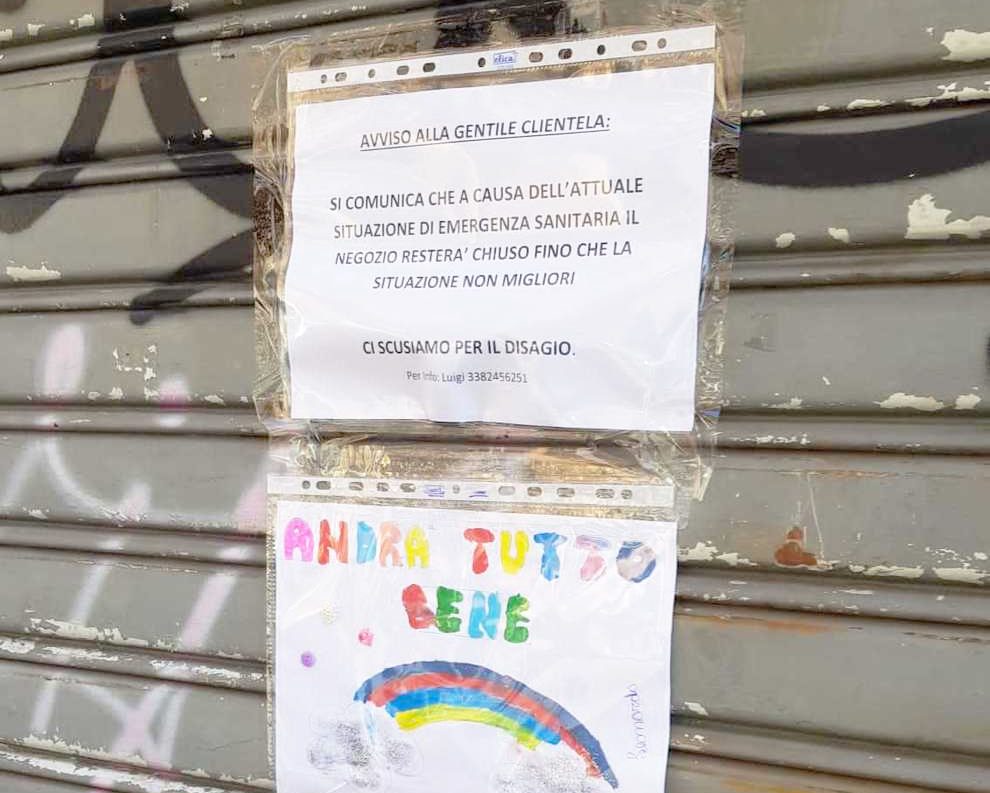 AVVISO ALLA GENTILE CLIENTELA:
SI COMUNICA CHE A CAUSA DELL'ATTUALE
SITUAZIONE DI EMERGENZA SANITARIA IL
NEGOZIO RESTERA' CHIUSO FINO CHE LA
SITUAZIONE NON MIGLIORI
CI SCUSIAMO PER IL DISAGIO.
Per Info: Luigi 3382456251
ANDRA TUTTO
BENE